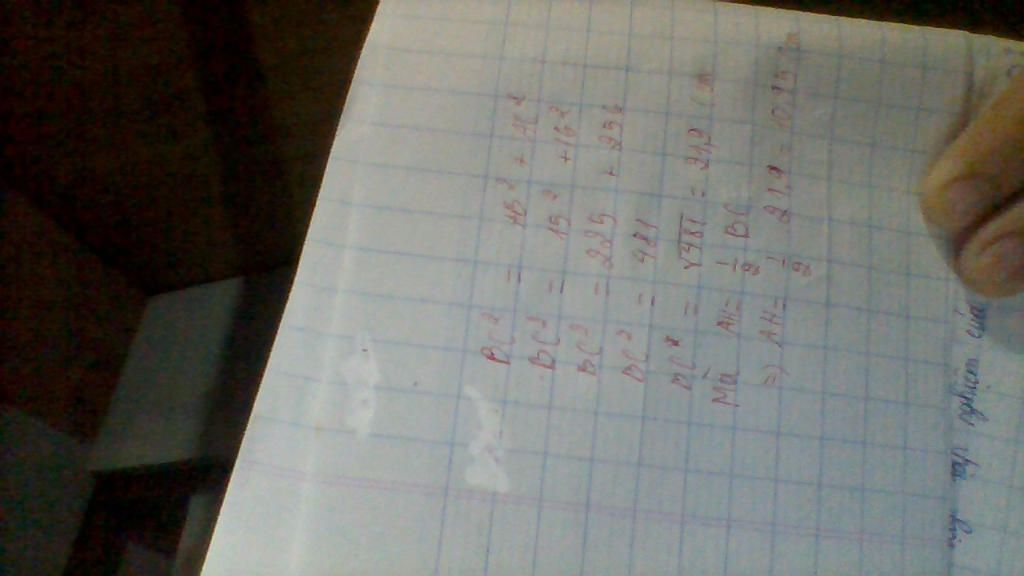 BC² = AB² + AC²
BC² = 15² + 16²
BC² = 225 + 256
BC² = 481
BC = √481 = 21,9 cm
Mà AH = 1/2 BC
=) AH = 1/2 21,9 = 10,95 cm